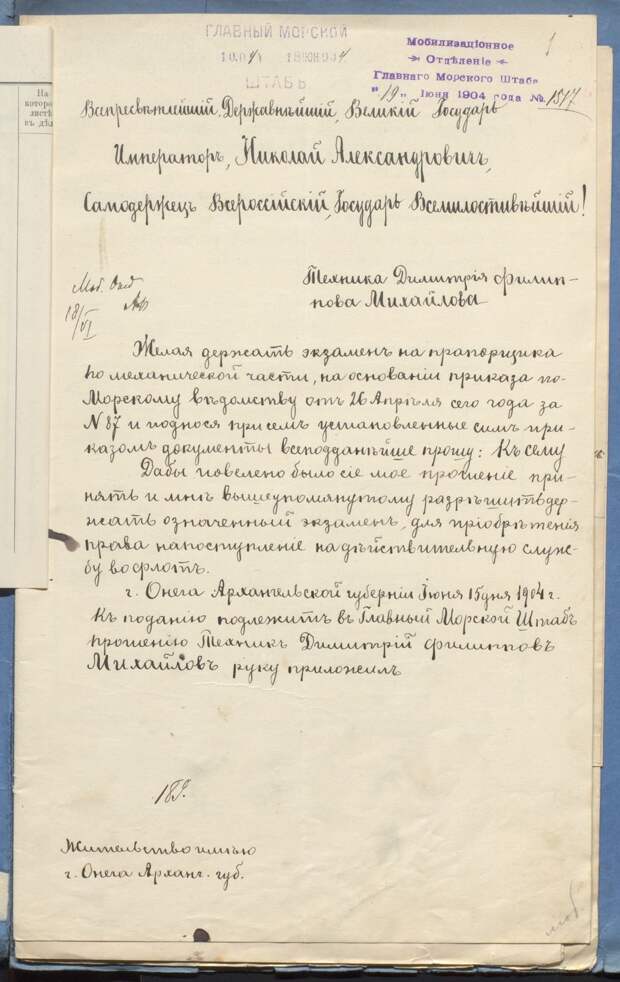 ГЛАВНЫЙ МОРСКОЙ
ШТАБЪ
Мобилизаціонное
Отдѣленіе
Главнаго Морского Штаба
"19" Іюня 1904 года № 1517
1
На
которо
листѣ
въ дѣл
Всепресвѣтлѣйшій, Державнѣйшій, Великій Государь
Императоръ, Николай Александровичъ,
Самодержецъ Всероссійскій, Государь Всемилостивѣйшій!
Моб. Отд
18/VI
Техника Димитрія Филип-
пова Михайлова
Желая держать экзаменъ на прапорщика
по механической части, на основаніи приказа по
Морскому вѣдомству отъ 26 Апрѣля сего года за
N 87 и поднося при семъ установленные симъ при-
казомъ документы всеподданнѣйше прошу: Къ сему
Дабы повелено было сіе мое прошеніе при-
нять и мнѣ вышеупомянутому разрѣшить дер-
жать означенный экзаменъ, для пріобрѣтенія
права на поступленіе на дѣйствительную служ-
бу во флотъ.
г. Онега Архангельской губерніи Іюня 15 дня 1904 г.
Къ поданію подлежитъ въ Главный Морской Штабъ
прошенію Техникъ Димитрій Филипповъ
Михайловъ руку приложилъ
Жительство имѣю
г. Онега Арханг. губ.